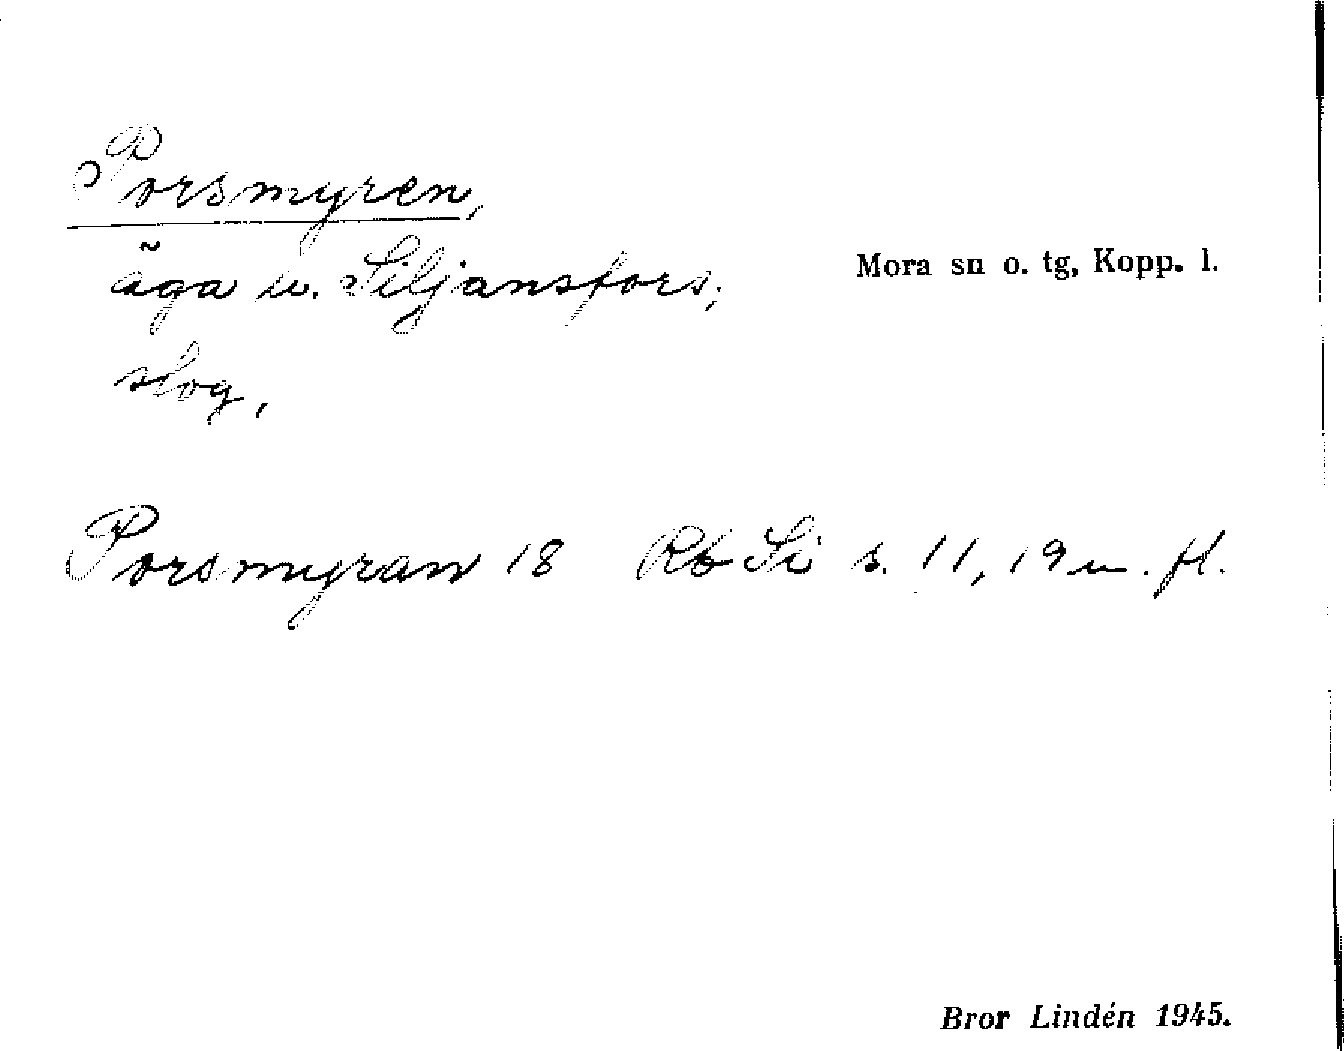 Porsmyren,
äga u. Siljansfors;
Mora sn o. tg, Kopp. l.
slog,
Porsmyran 18 Rb Si s. 11, 19 m. fl.
Bror Lindén 1945.